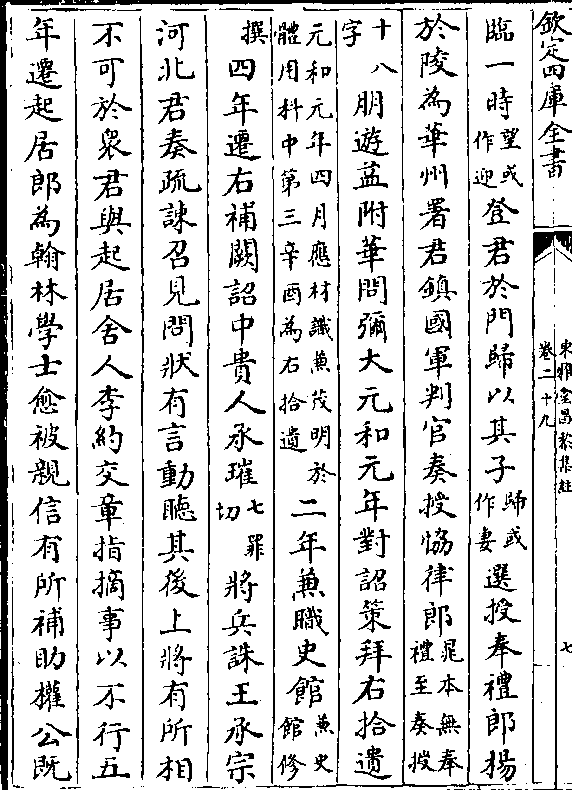 欽定四庫全書
東雅堂昌黎集註
卷二十九
七
臨一時望或作迎登君於門歸以其子歸或作妻選授奉禮郎楊
於陵為華州署君鎮國軍判官奏授恊律郎晁本無奉禮至奏授
十八字朋遊益附華問彌大元和元年對詔策拜右拾遺
元和元年四月應材識兼茂明於體用科中第三辛酉為右拾遺二年兼職史館兼史館修
撰四年遷右補闕詔中貴人承璀七罪切將兵誅王承宗
河北君奏疏諫召見問狀有言動聽其後上將有所相
不可於衆君與起居舍人李約交章指摘事以不行五
年遷起居郎為翰林學士愈被親信有所補助權公既